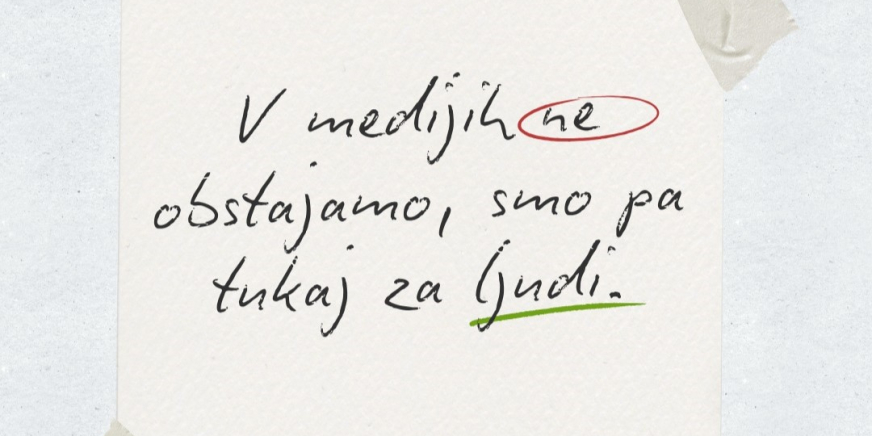 V medijih ne
obstajamo, smo pa
tukaj za ljudi.